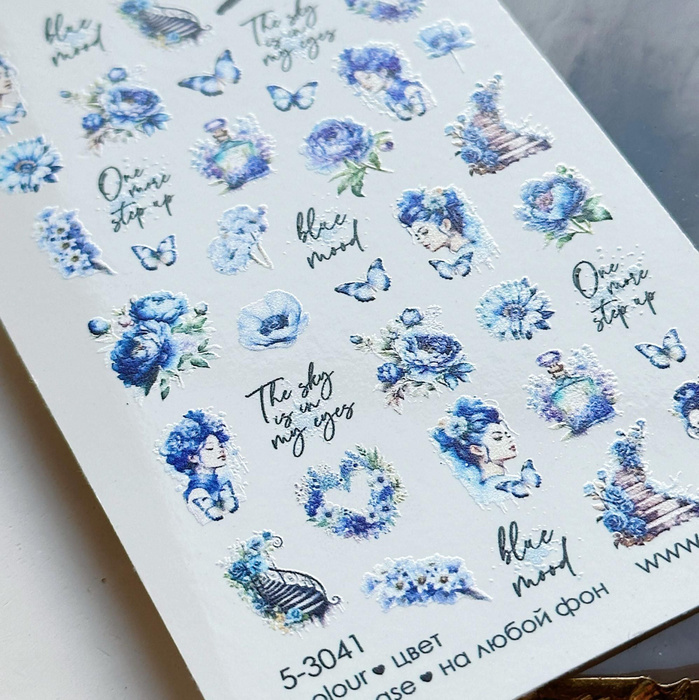 blue
mood
The sky
is in
my eyes
One
more
step up
blue
mood
One
more
step up
The sky
is in
my eyes
blue
mood
5-3041
olour ♥ цвет
ase ♥ на любой фон
www